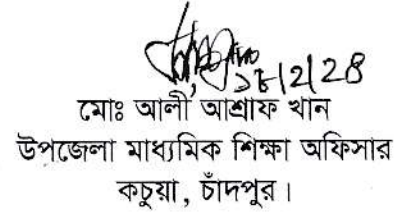 মোঃ আলী আশ্রাফ খান
উপজেলা মাধ্যমিক শিক্ষা অফিসার
কচুয়া, চাঁদপুর।